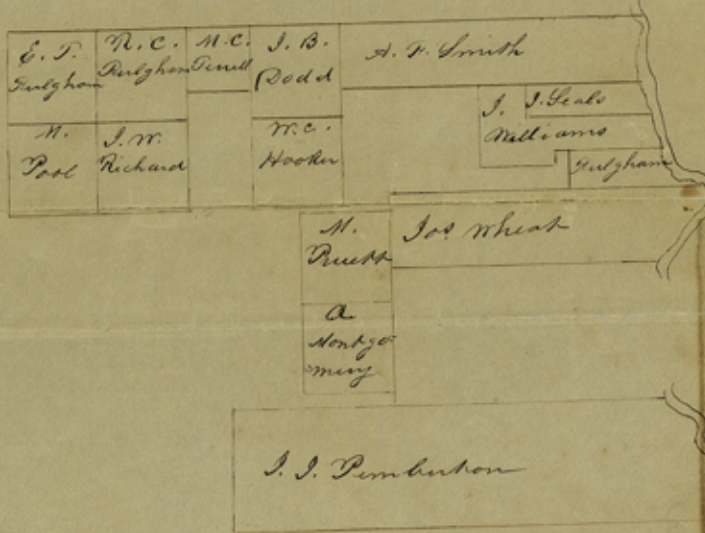 E. T.
Fulgham
R. C.
Fulgham
M. C.
Terrell
J. B.
Dodd
A. F. Smith
J. Seals
J.
Williams
Fulgham
N.
Pool
J. W.
Richard
W. C.
Hooker
M.
Pruett
Jos Wheat
A
Montgo
mery
J. J. Pemberton